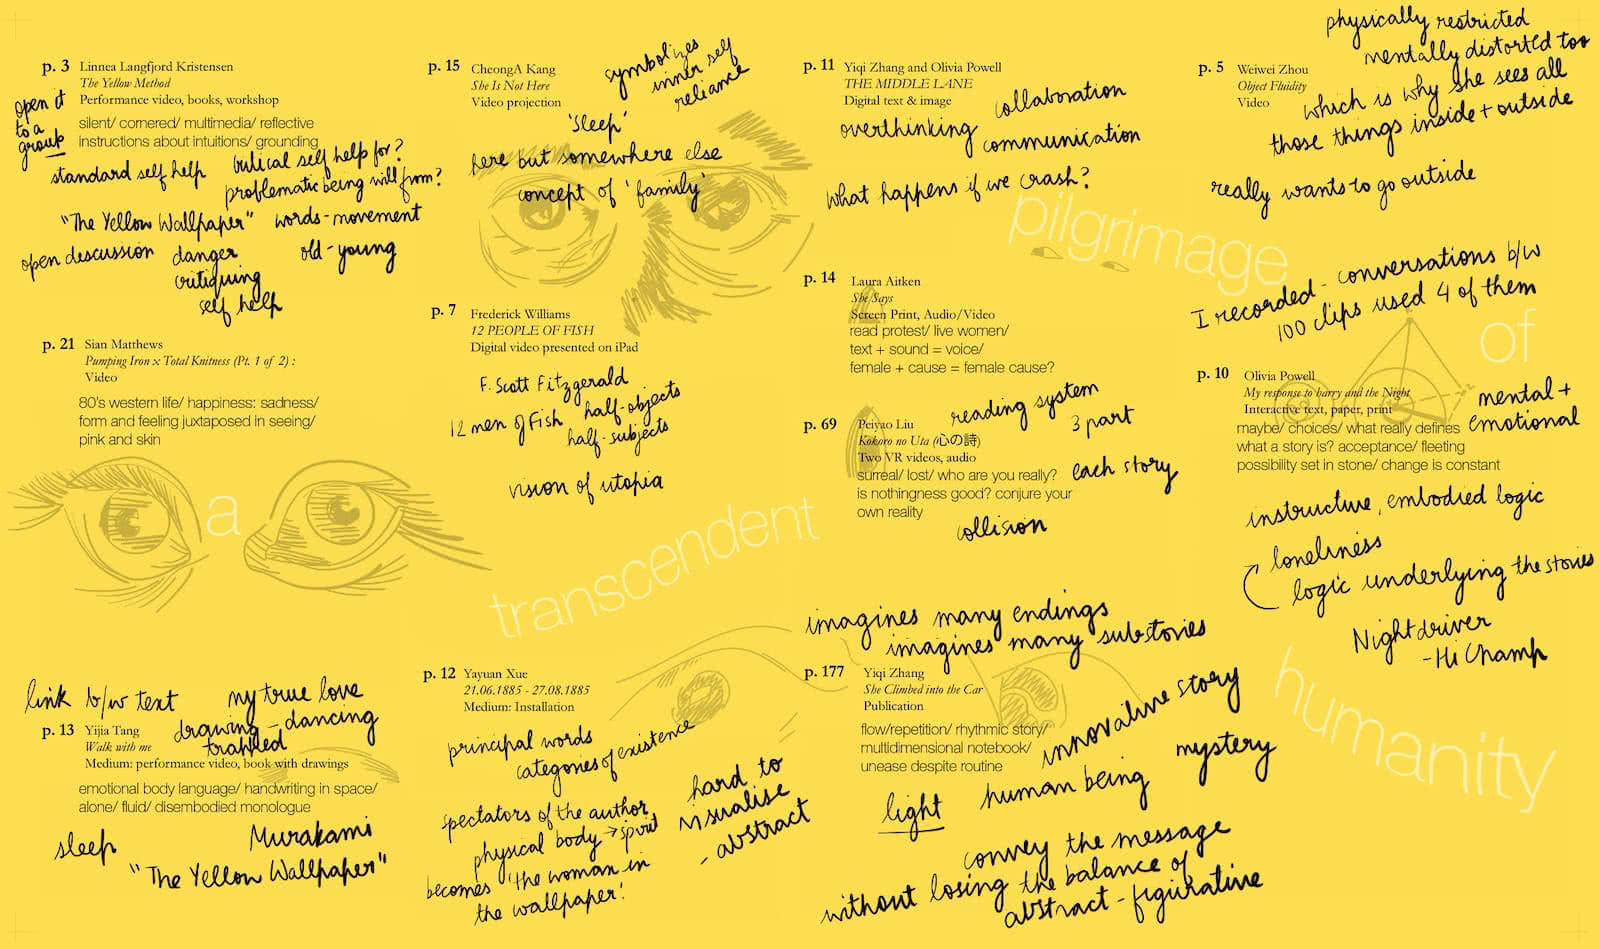 p. 3 Linnea Langfjord Kristensen
The Yellow Method
Performance video, books, workshop
silent/ cornered/ multimedia/ reflective
instructions about intuitions/ grounding
open it
to a
group
standard self help
critical self help for?
problematic being will from?
"The Yellow Wallpaper"
words - movement
open descussion
danger
old - young
critiquing
self help
p. 21 Sian Matthews
Pumping Iron x Total Knitness (Pt. 1 of 2) :
Video
80's western life/ happiness: sadness/
form and feeling juxtaposed in seeing/
pink and skin
a
link b/w text
my true love
drawing - dancing
p. 13 Yijia Tang
Walk with me
Medium: performance video, book with drawings
emotional body language/ handwriting in space/
alone/ fluid/ disembodied monologue
sleep
Murakami
"The Yellow Wallpaper"
p. 15 CheongA Kang
She Is Not Here
Video projection
symbolizes
inner self
reliance
'sleep'
here but somewhere else
concept of 'family'
p. 7 Frederick Williams
12 PEOPLE OF FISH
Digital video presented on iPad
F. Scott Fitzgerald
12 men of Fish
half-objects
half-subjects
vision of utopia
transcendent
p. 12 Yayuan Xue
21.06.1885 - 27.08.1885
Medium: Installation
principal words
categories of existence
spectators of the author
physical body → spirit
becomes 'the woman in
the wallpaper.'
hard to
visualise
- abstract
p. 11 Yiqi Zhang and Olivia Powell
THE MIDDLE LANE
Digital text & image
collaboration
overthinking
communication
what happens if we crash?
pilgrimage
p. 14 Laura Aitken
She Says
Screen Print, Audio/Video
read protest/ live women/
text + sound = voice/
female + cause = female cause?
reading system
3 part
p. 69 Peiyao Liu
Kokoro no Uta (心の詩)
Two VR videos, audio
surreal/ lost/ who are you really?
is nothingness good? conjure your
own reality
each story
collision
imagines many endings
imagines many substories
p. 177 Yiqi Zhang
She Climbed into the Car
Publication
flow/repetition/ rhythmic story/
multidimensional notebook/
unease despite routine
innovative story
light
human being
mystery
convey the message
without losing the balance of
abstract - figurative
physically restricted
mentally distorted too
p. 5 Weiwei Zhou
Object Fluidity
Video
which is why she sees all
those things inside + outside
really wants to go outside
I recorded - conversations b/w
100 clips used 4 of them
of
p. 10 Olivia Powell
My response to harry and the Night
Interactive text, paper, print
maybe/ choices/ what really defines
what a story is? acceptance/ fleeting
possibility set in stone/ change is constant
mental +
emotional
instructive, embodied logic
loneliness
logic underlying the stories
Nightdriver
- Hi Champ
humanity